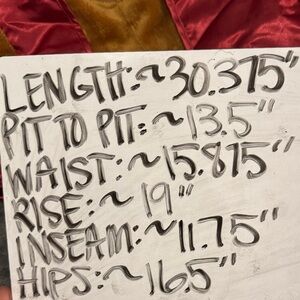 LENGTH:~30.375"
PIT TO PIT:~13.5"
WAIST:~15.875"
RISE:~19"
INSEAM:~11.75"
HIPS:~16.5"